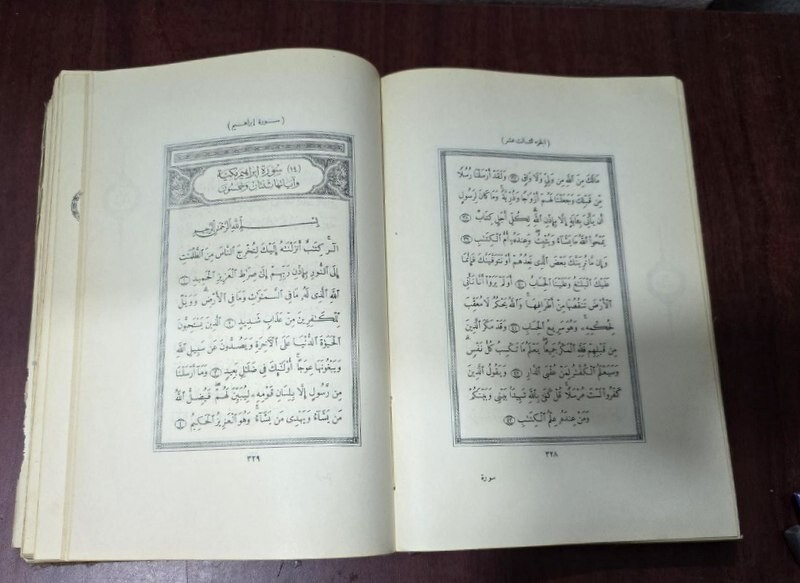 (الجزء الثالث عشر)
مَالَكَ مِنَ ٱللَّهِ مِن وَلِيٍّ وَلَا وَاقٍ ۝٣٧ وَلَقَدْ أَرْسَلْنَا رُسُلًا
مِّن قَبْلِكَ وَجَعَلْنَا لَهُمْ أَزْوَٰجًا وَذُرِّيَّةً وَمَا كَانَ لِرَسُولٍ
أَن يَأْتِىَ بِـَٔايَةٍ إِلَّا بِإِذْنِ ٱللَّهِ لِكُلِّ أَجَلٍ كِتَابٌ ۝٣٨
يَمْحُوا۟ ٱللَّهُ مَا يَشَآءُ وَيُثْبِتُ وَعِندَهُۥٓ أُمُّ ٱلْكِتَٰبِ ۝٣٩
وَإِن مَّا نُرِيَنَّكَ بَعْضَ ٱلَّذِى نَعِدُهُمْ أَوْ نَتَوَفَّيَنَّكَ فَإِنَّمَا
عَلَيْكَ ٱلْبَلَٰغُ وَعَلَيْنَا ٱلْحِسَابُ ۝٤٠ أَوَلَمْ يَرَوْا۟ أَنَّا نَأْتِى
ٱلْأَرْضَ نَنقُصُهَا مِنْ أَطْرَافِهَا وَٱللَّهُ يَحْكُمُ لَا مُعَقِّبَ
لِحُكْمِهِۦ وَهُوَ سَرِيعُ ٱلْحِسَابِ ۝٤١ وَقَدْ مَكَرَ ٱلَّذِينَ
مِن قَبْلِهِمْ فَلِلَّهِ ٱلْمَكْرُ جَمِيعًا يَعْلَمُ مَا تَكْسِبُ كُلُّ نَفْسٍ
وَسَيَعْلَمُ ٱلْكُفَّٰرُ لِمَنْ عُقْبَى ٱلدَّارِ ۝٤٢ وَيَقُولُ ٱلَّذِينَ
كَفَرُوا۟ لَسْتَ مُرْسَلًا قُلْ كَفَىٰ بِٱللَّهِ شَهِيدًۢا بَيْنِى وَبَيْنَكُمْ
وَمَنْ عِندَهُۥ عِلْمُ ٱلْكِتَٰبِ ۝٤٣
٣٢٨
سورة
(سورة إبراهيم)
(١٤) سُورَةُ إِبْرَاهِيمَ مَكِّيَّة
وَآيَاتُهَا ثِنْتَانِ وَخَمْسُونَ
بِسْمِ ٱللَّهِ ٱلرَّحْمَٰنِ ٱلرَّحِيمِ
الٓر كِتَٰبٌ أَنزَلْنَٰهُ إِلَيْكَ لِتُخْرِجَ ٱلنَّاسَ مِنَ ٱلظُّلُمَٰتِ
إِلَى ٱلنُّورِ بِإِذْنِ رَبِّهِمْ إِلَىٰ صِرَٰطِ ٱلْعَزِيزِ ٱلْحَمِيدِ ۝١
ٱللَّهِ ٱلَّذِى لَهُۥ مَا فِى ٱلسَّمَٰوَٰتِ وَمَا فِى ٱلْأَرْضِ وَوَيْلٌ
لِّلْكَٰفِرِينَ مِنْ عَذَابٍ شَدِيدٍ ۝٢ ٱلَّذِينَ يَسْتَحِبُّونَ
ٱلْحَيَوٰةَ ٱلدُّنْيَا عَلَى ٱلْأَخِرَةِ وَيَصُدُّونَ عَن سَبِيلِ ٱللَّهِ
وَيَبْغُونَهَا عِوَجًا أُو۟لَٰٓئِكَ فِى ضَلَٰلٍۭ بَعِيدٍ ۝٣ وَمَآ أَرْسَلْنَا
مِن رَّسُولٍ إِلَّا بِلِسَانِ قَوْمِهِۦ لِيُبَيِّنَ لَهُمْ فَيُضِلُّ ٱللَّهُ
مَن يَشَآءُ وَيَهْدِى مَن يَشَآءُ وَهُوَ ٱلْعَزِيزُ ٱلْحَكِيمُ ۝٤
٣٢٩